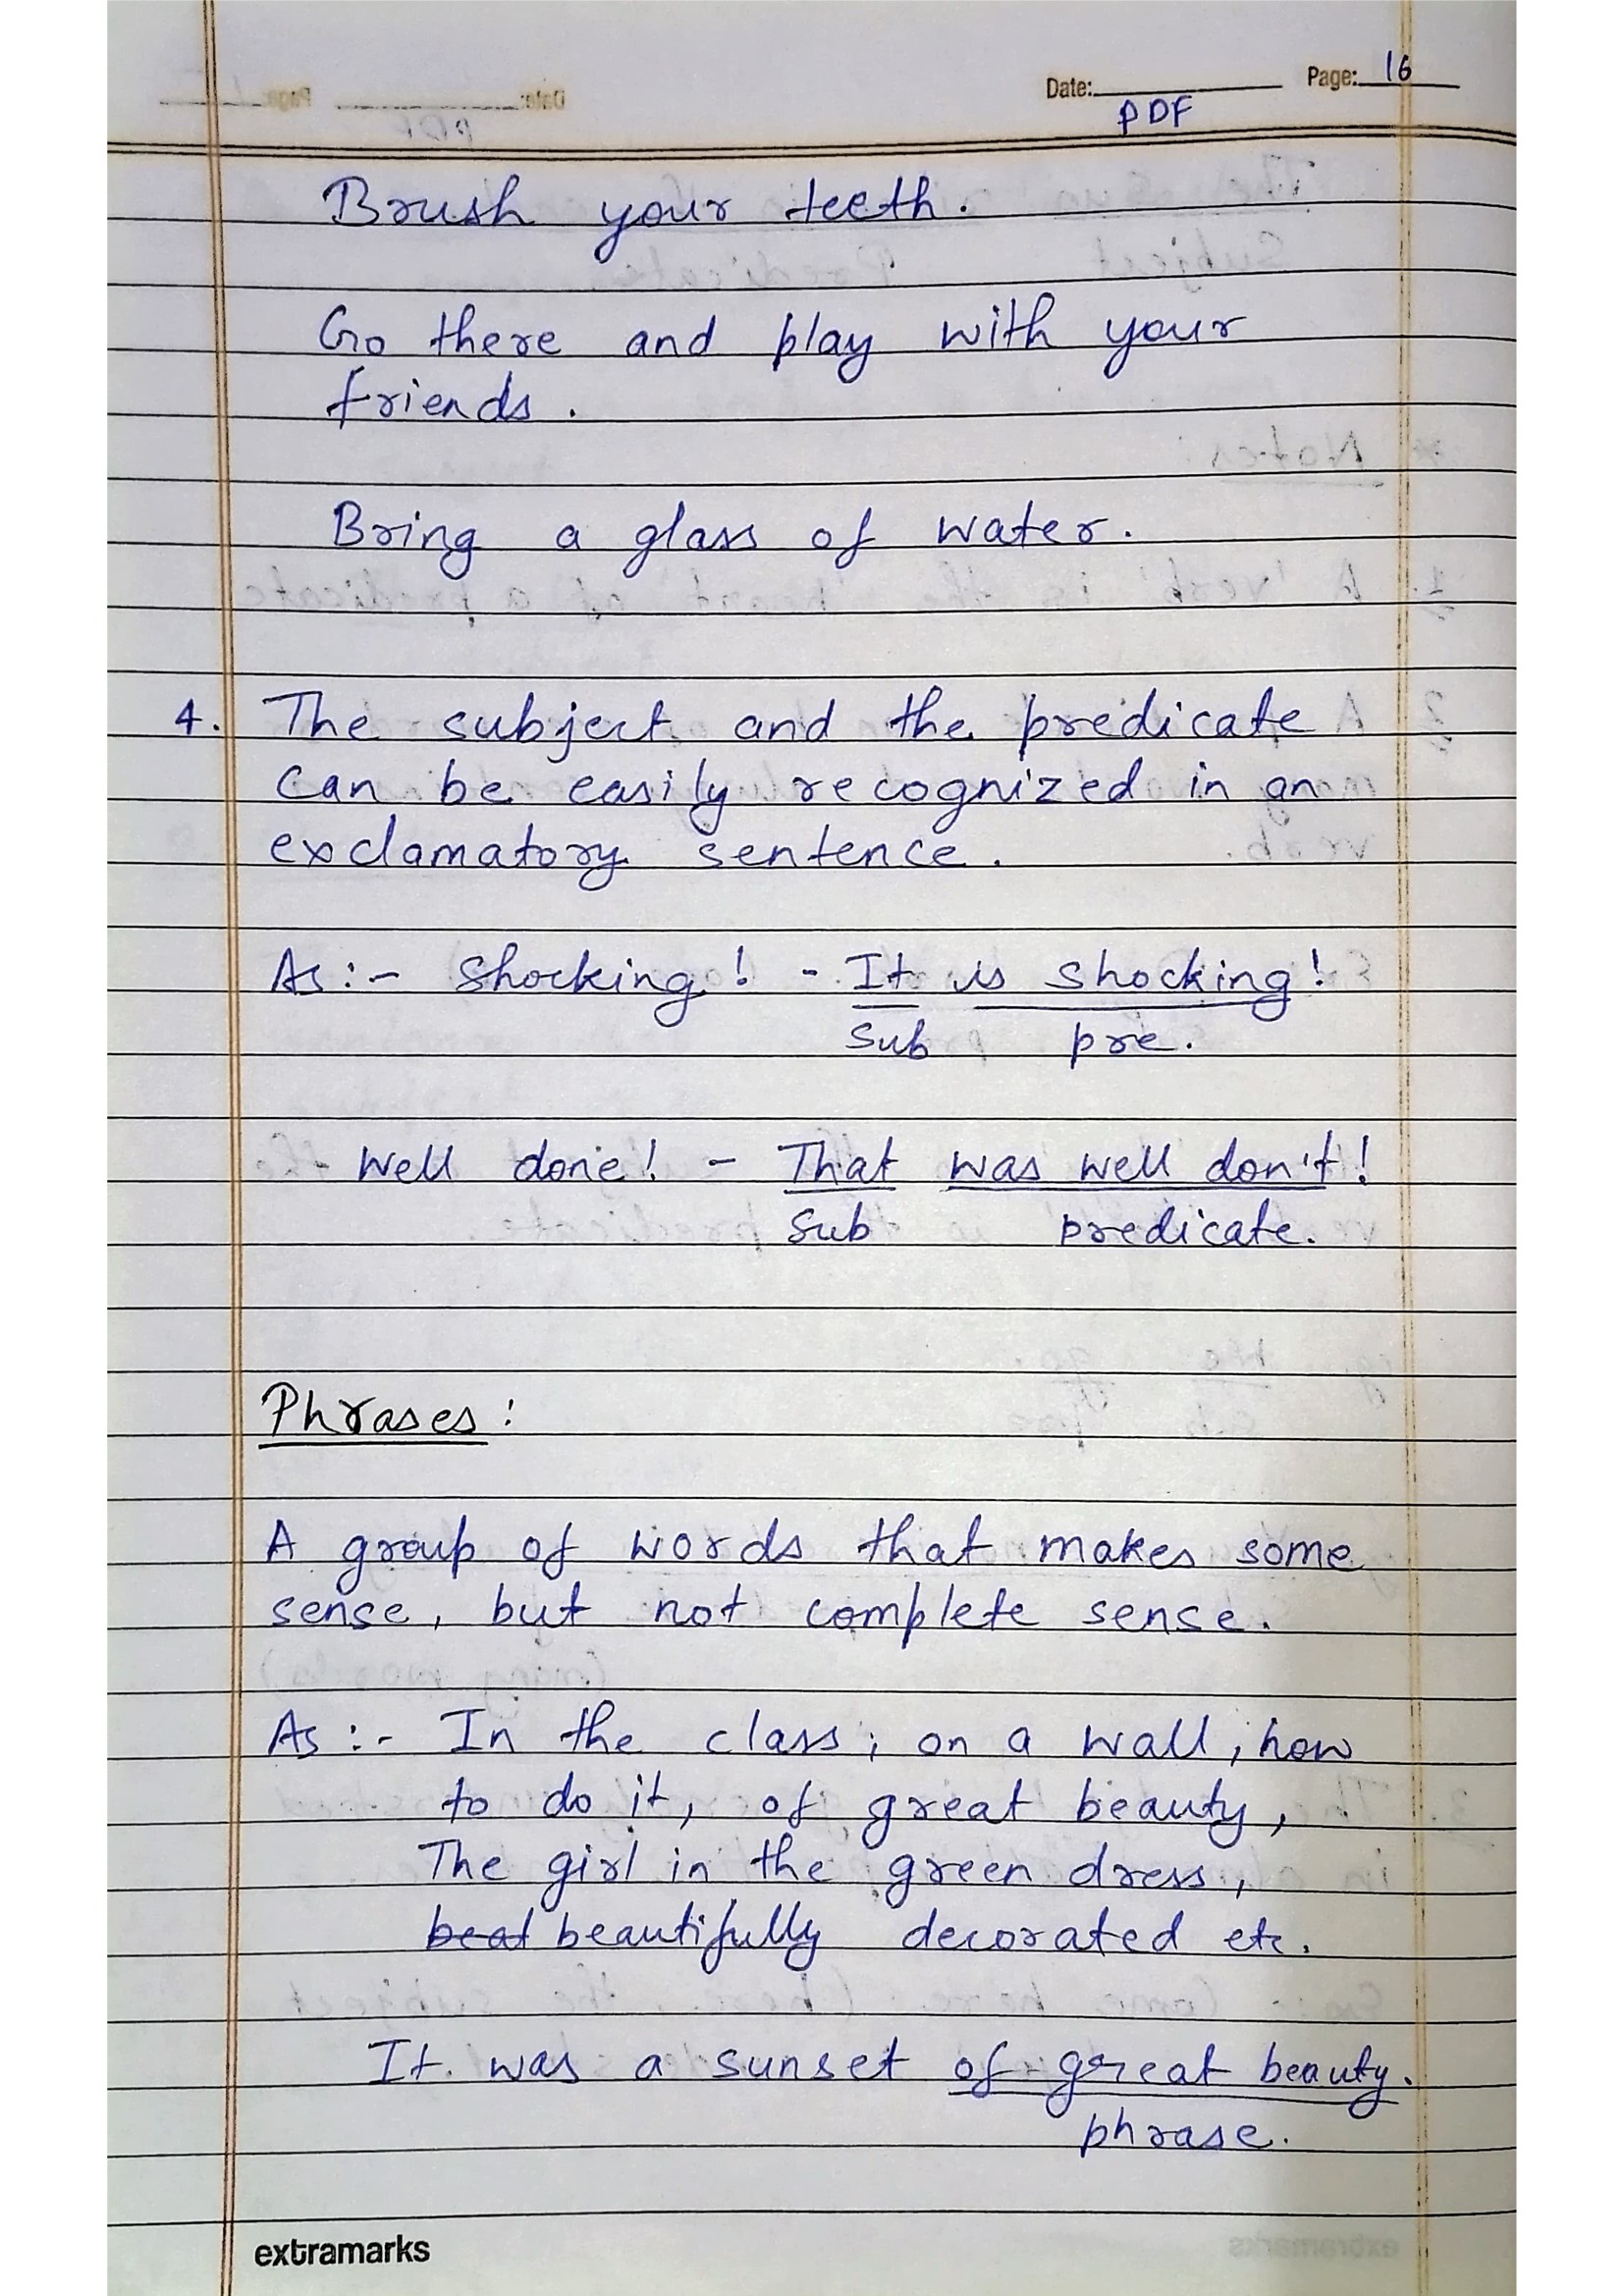 Date: Page: 16
PDF
Brush your teeth.
Go there and play with your
friends.
Bring a glass of water.
4. The subject and the predicate
can be easily recognized in an
exclamatory sentence.
As:- Shocking! - It is shocking!
Sub pre.
- Well done! - That was well don't!
Sub predicate.
Phrases:
A group of words that makes some
sense, but not complete sense.
As:- In the class; on a wall; how
to do it, of great beauty,
The girl in the green dress,
beat beautifully decorated etc.
It was a sunset of great beauty.
phrase.
extramarks